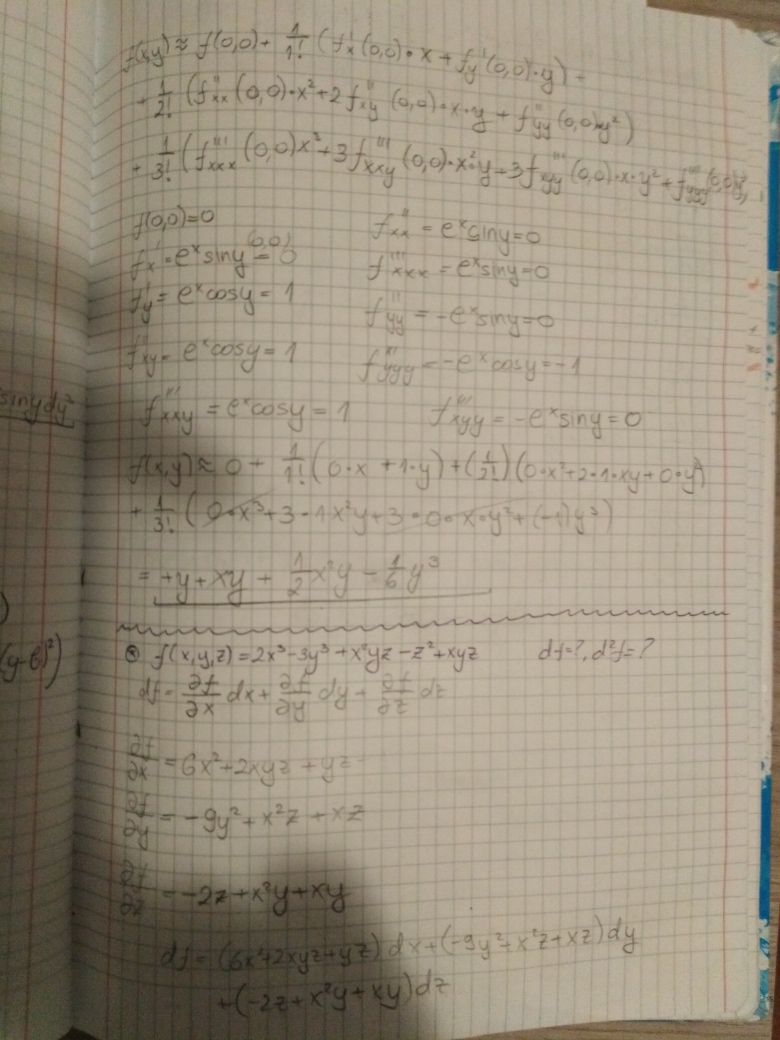 f(x,y) ≈ f(0,0) + 1/1! (f'x(0,0)·x + f'y(0,0)·y) +
+ 1/2! (f''xx(0,0)·x² + 2f''xy(0,0)·x·y + f''yy(0,0)y²)
+ 1/3! (f'''xxx(0,0)x³ + 3f'''xxy(0,0)·x²·y + 3f'''xyy(0,0)·x·y² + f'''yyy(0,0)y³)
f(0,0)=0
f''xx = eˣsiny=0
f'x = eˣsiny (0,0) = 0
f'''xxx = eˣsiny=0
f'y = eˣcosy = 1
f''yy = -eˣsiny=0
f''xy = eˣcosy = 1
f'''yyy = -eˣcosy = -1
f'''xxy = eˣcosy = 1
f'''xyy = -eˣsiny = 0
sinydy²
f(x,y) ≈ 0 + 1/1! (0·x + 1·y) + (1/2!) (0·x² + 2·1·xy + 0·y²)
+ 1/3! (0·x³ + 3·1x²y + 3·0·x·y² + (-1)y³)
= +y + xy + 1/2 x²y - 1/6 y³
)
(y-6)²)
f(x,y,z) = 2x³ - 3y³ + x²yz - z² + xyz df=?, d²f=?
df = ∂f/∂x dx + ∂f/∂y dy + ∂f/∂z dz
∂f/∂x = 6x² + 2xyz + yz
∂f/∂y = -9y² + x²z + xz
∂f/∂z = -2z + x²y + xy
df = (6x² + 2xyz + yz) dx + (-9y² + x²z + xz) dy
+ (-2z + x²y + xy) dz